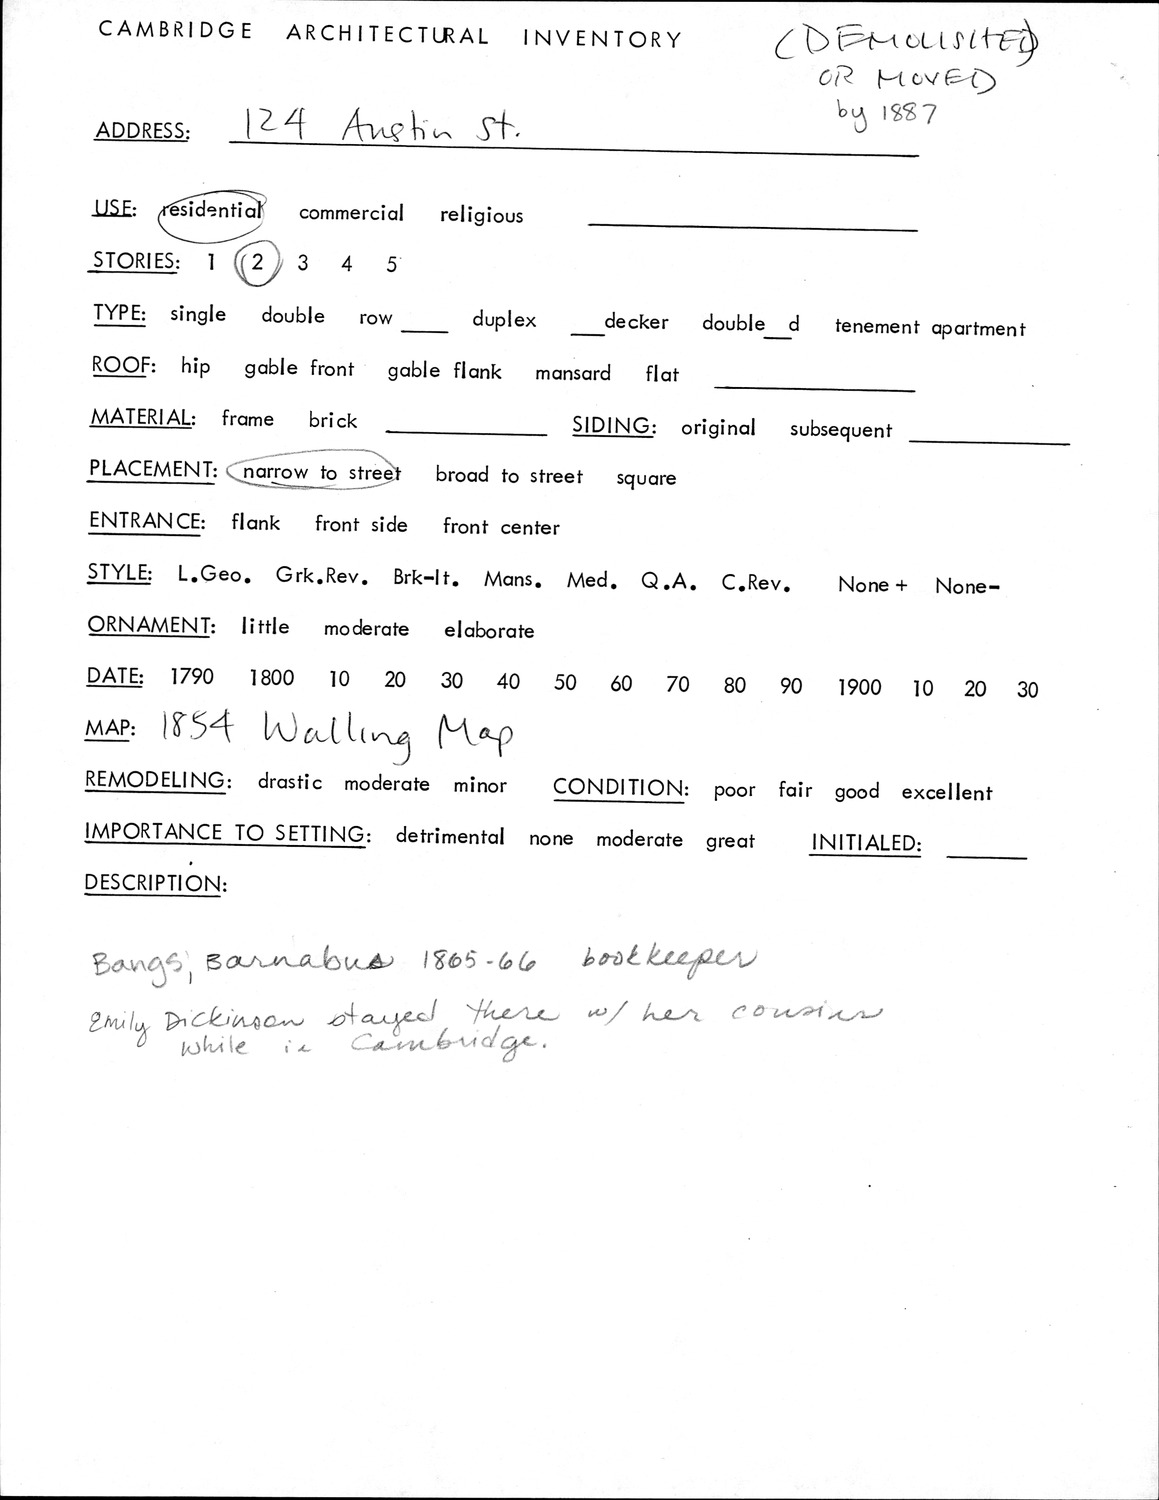 CAMBRIDGE ARCHITECTURAL INVENTORY
(DEMOLISHED)
OR MOVED
by 1887
ADDRESS: 124 Austin St.
USE: residential commercial religious
STORIES: 1 2 3 4 5
TYPE: single double row ____ duplex ___decker double__d tenement apartment
ROOF: hip gable front gable flank mansard flat
MATERIAL: frame brick SIDING: original subsequent
PLACEMENT: narrow to street broad to street square
ENTRANCE: flank front side front center
STYLE: L.Geo. Grk.Rev. Brk-It. Mans. Med. Q.A. C.Rev. None + None-
ORNAMENT: little moderate elaborate
DATE: 1790 1800 10 20 30 40 50 60 70 80 90 1900 10 20 30
MAP: 1854 Walling Map
REMODELING: drastic moderate minor CONDITION: poor fair good excellent
IMPORTANCE TO SETTING: detrimental none moderate great INITIALED:
DESCRIPTION:
Bangs, Barnabus 1865-66 bookkeeper
Emily Dickinson stayed there w/ her cousins
while in Cambridge.